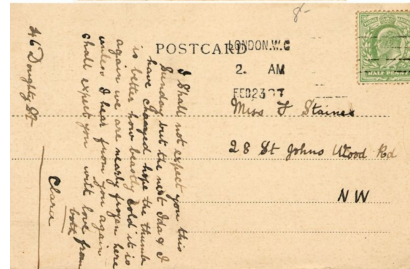 8-
POSTCARD
LONDON.W.C
2. AM
FEB 23 07
HALF PENNY
Miss F Staines
28 St Johns Wood Rd
NW
46 Doughty St
I shall not expect you this
Sunday but the next Ida & I
have changed hope the thumb
is better how beastly cold it is
again we are nearly frozen here
unless I hear from you again
shall expect you with love from
both
Clarce